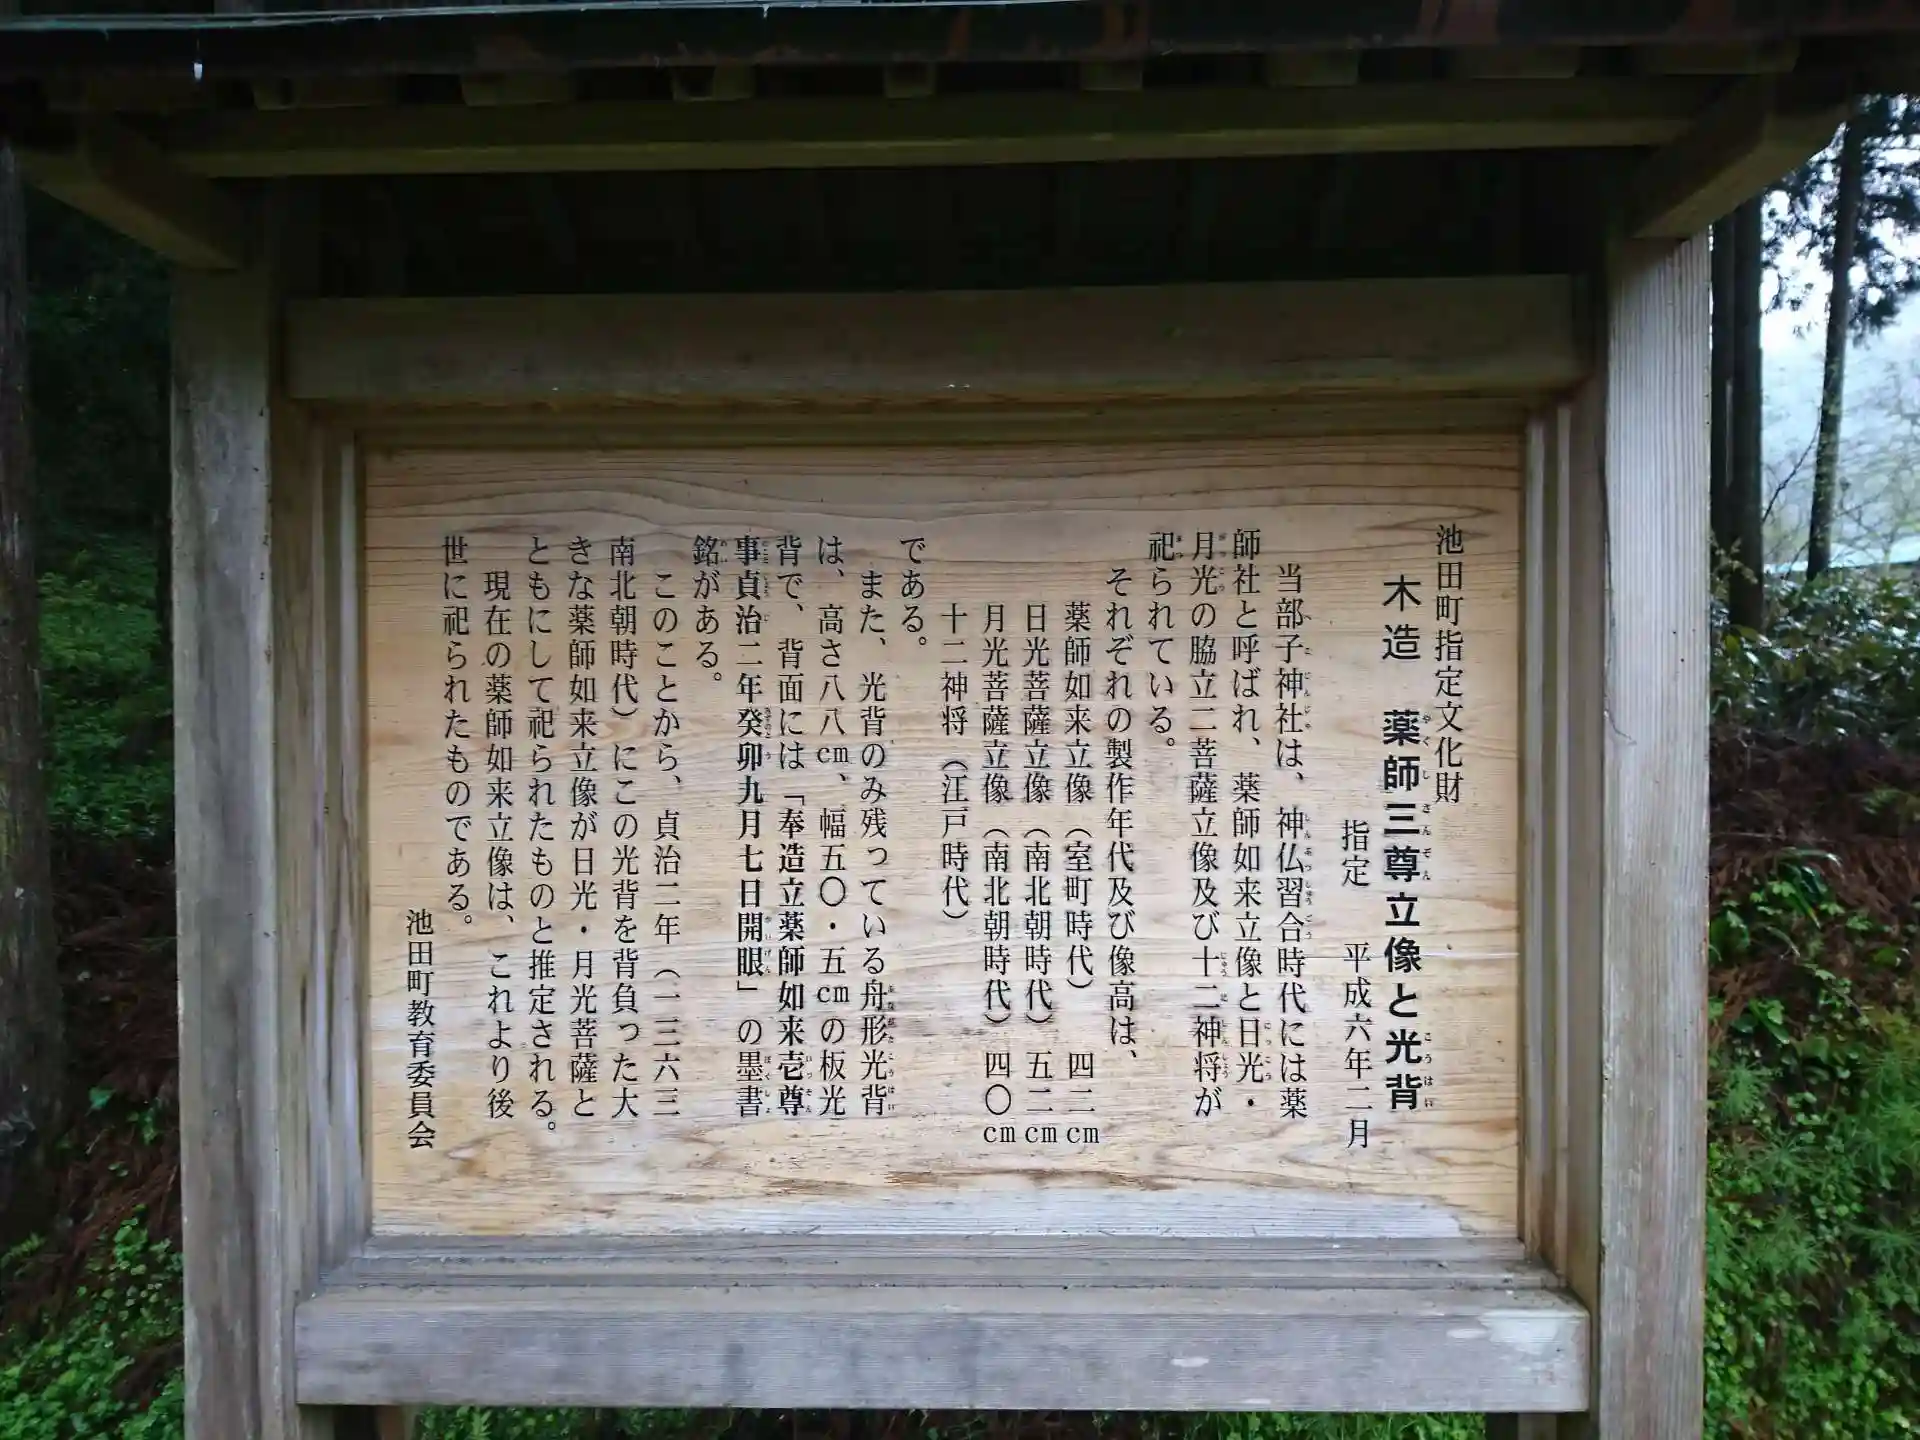 池田町指定文化財
木造 薬師三尊立像と光背
指定 平成六年二月
当部子神社は、神仏習合時代には薬
師社と呼ばれ、薬師如来立像と日光・
月光の脇立二菩薩立像及び十二神将が
祀られている。
それぞれの製作年代及び像高は、
薬師如来立像（室町時代） 四二cm
日光菩薩立像（南北朝時代） 五二cm
月光菩薩立像（南北朝時代） 四〇cm
十二神将（江戸時代）
である。
また、光背のみ残っている舟形光背
は、高さ八八cm、幅五〇・五cmの板光
背で、背面には「奉造立薬師如来壱尊
事貞治二年癸卯九月七日開眼」の墨書
銘がある。
このことから、貞治二年（一三六三
南北朝時代）にこの光背を背負った大
きな薬師如来立像が日光・月光菩薩と
ともにして祀られたものと推定される。
現在の薬師如来立像は、これより後
世に祀られたものである。
池田町教育委員会